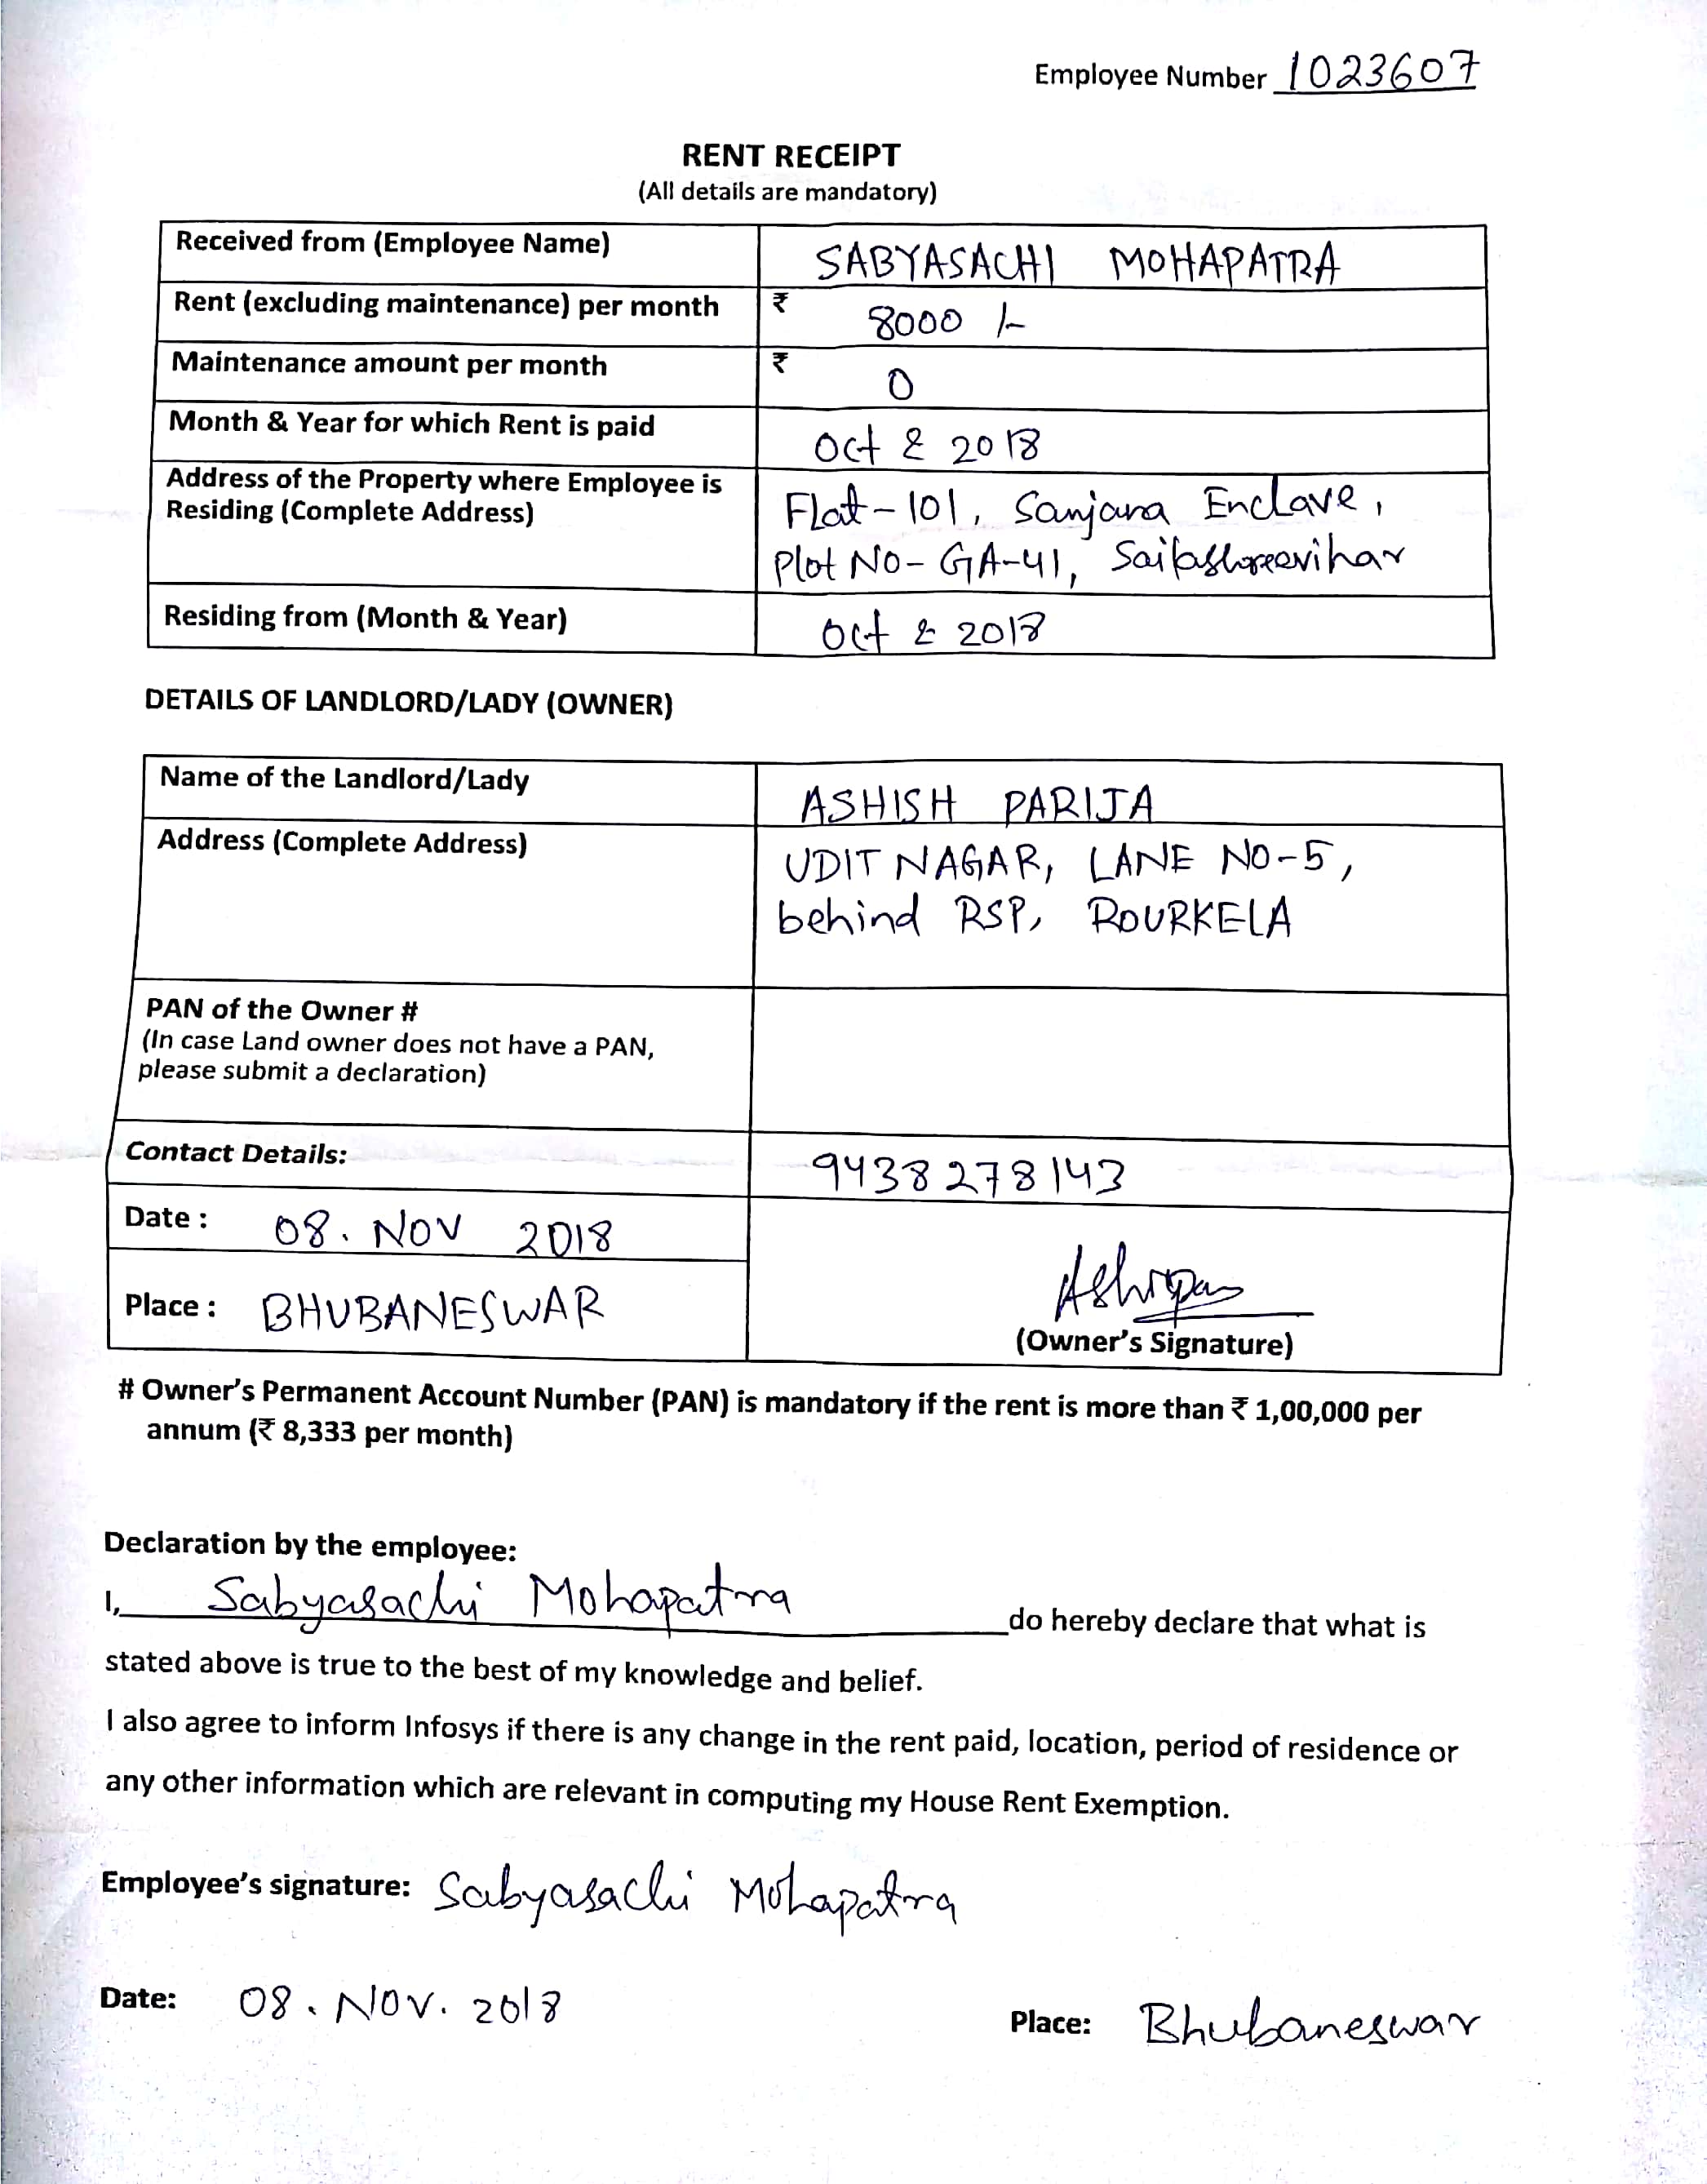 Employee Number 1023607
RENT RECEIPT
(All details are mandatory)
Received from (Employee Name) SABYASACHI MOHAPATRA
Rent (excluding maintenance) per month ₹ 8000 /-
Maintenance amount per month ₹ 0
Month & Year for which Rent is paid Oct & 2018
Address of the Property where Employee is
Residing (Complete Address)
Flat-101, Sanjana Enclave,
Plot No- GA-41,
Residing from (Month & Year) Oct & 2018
DETAILS OF LANDLORD/LADY (OWNER)
Name of the Landlord/Lady ASHISH PARIJA
Address (Complete Address)
UDIT NAGAR, LANE NO-5,
behind RSP, ROURKELA
PAN of the Owner #
(In case Land owner does not have a PAN,
please submit a declaration)
Contact Details: 9438278143
Date : 08. NOV 2018
Place : BHUBANESWAR
(Owner's Signature)
# Owner's Permanent Account Number (PAN) is mandatory if the rent is more than ₹ 1,00,000 per
annum (₹ 8,333 per month)
Declaration by the employee:
I, Sabyasachi Mohapatra do hereby declare that what is
stated above is true to the best of my knowledge and belief.
I also agree to inform Infosys if there is any change in the rent paid, location, period of residence or
any other information which are relevant in computing my House Rent Exemption.
Employee's signature: Sabyasachi Mohapatra
Date: 08. NOV. 2018
Place: Bhubaneswar